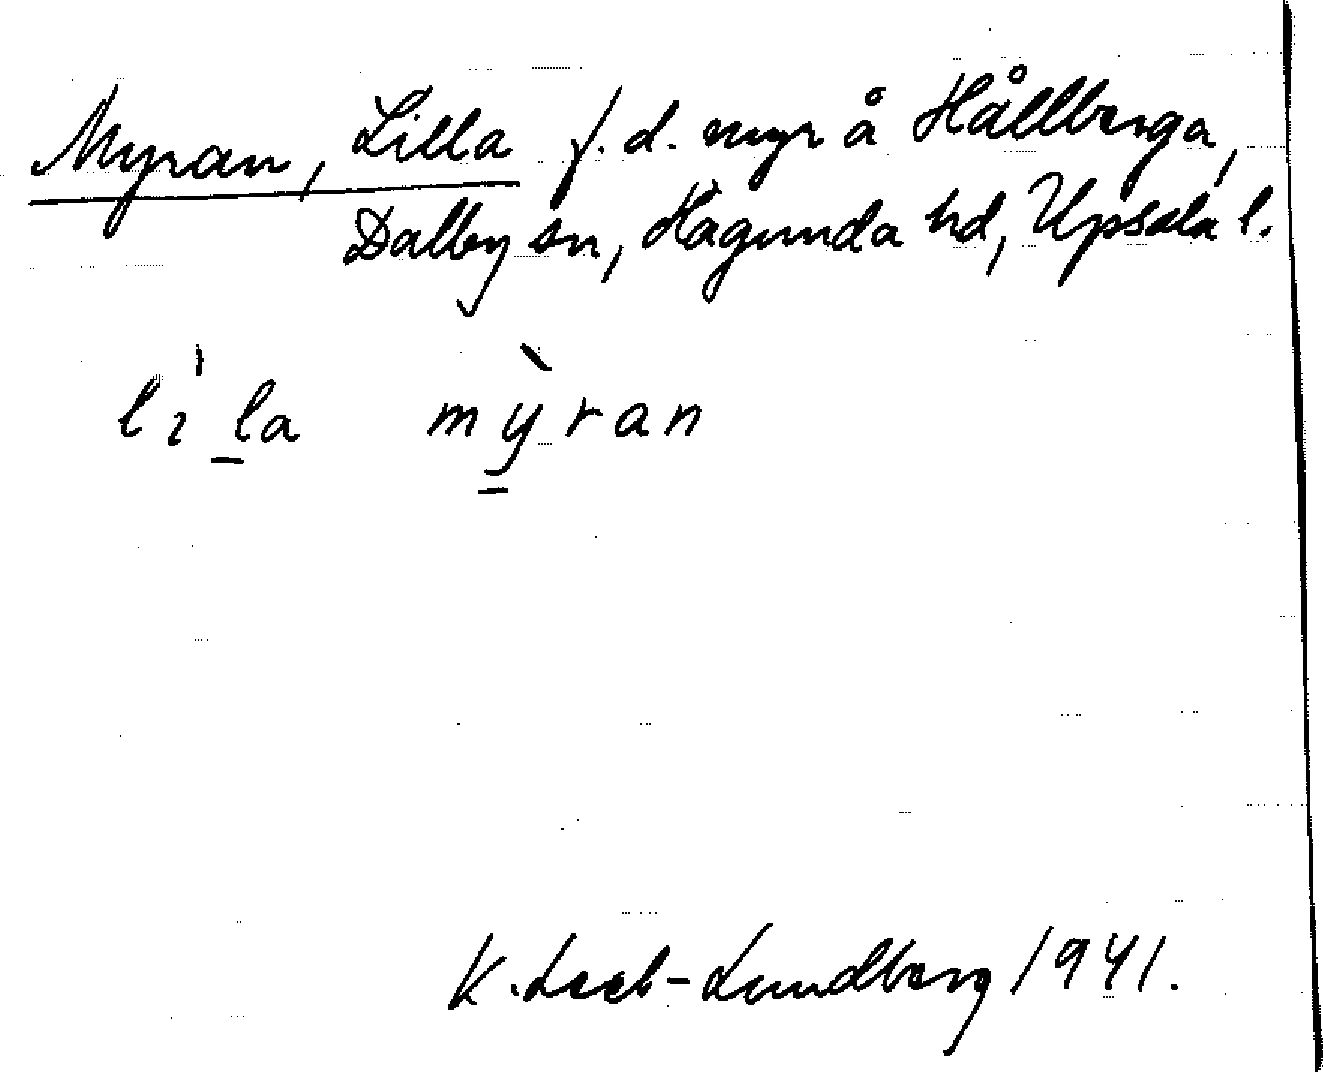 Myran, Lilla f.d. myr å Hållberga,
Dalby sn, Hagunda hd, Upsala l.
lı̍l̠a mỳ̠ran
K. Leeb-Lundberg 1941.